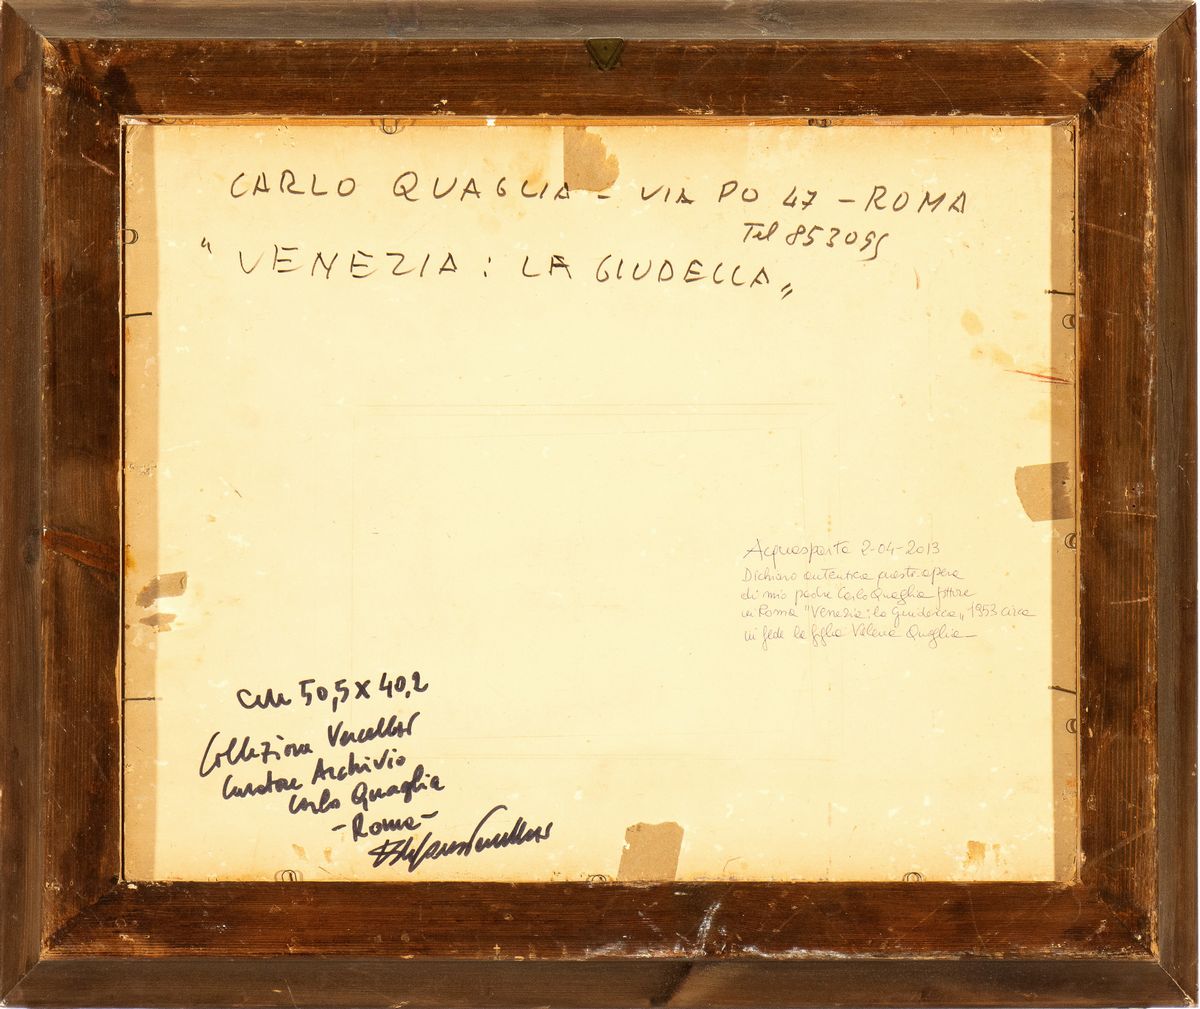 CARLO QUAGLIA - VIA PO 47 - ROMA
Tel 853095
"VENEZIA: LA GIUDECCA„
Acquasparta 2-04-2013
Dichiaro autentica quest'opera
di mio padre Carlo Quaglia pittore
in Roma "Venezia: la Giudecca„ 1953 circa
in fede la figlia Valeria Quaglia
cm 50,5 x 40,2
Collezione
Curatore Archivio
Carlo Quaglia
- Roma -